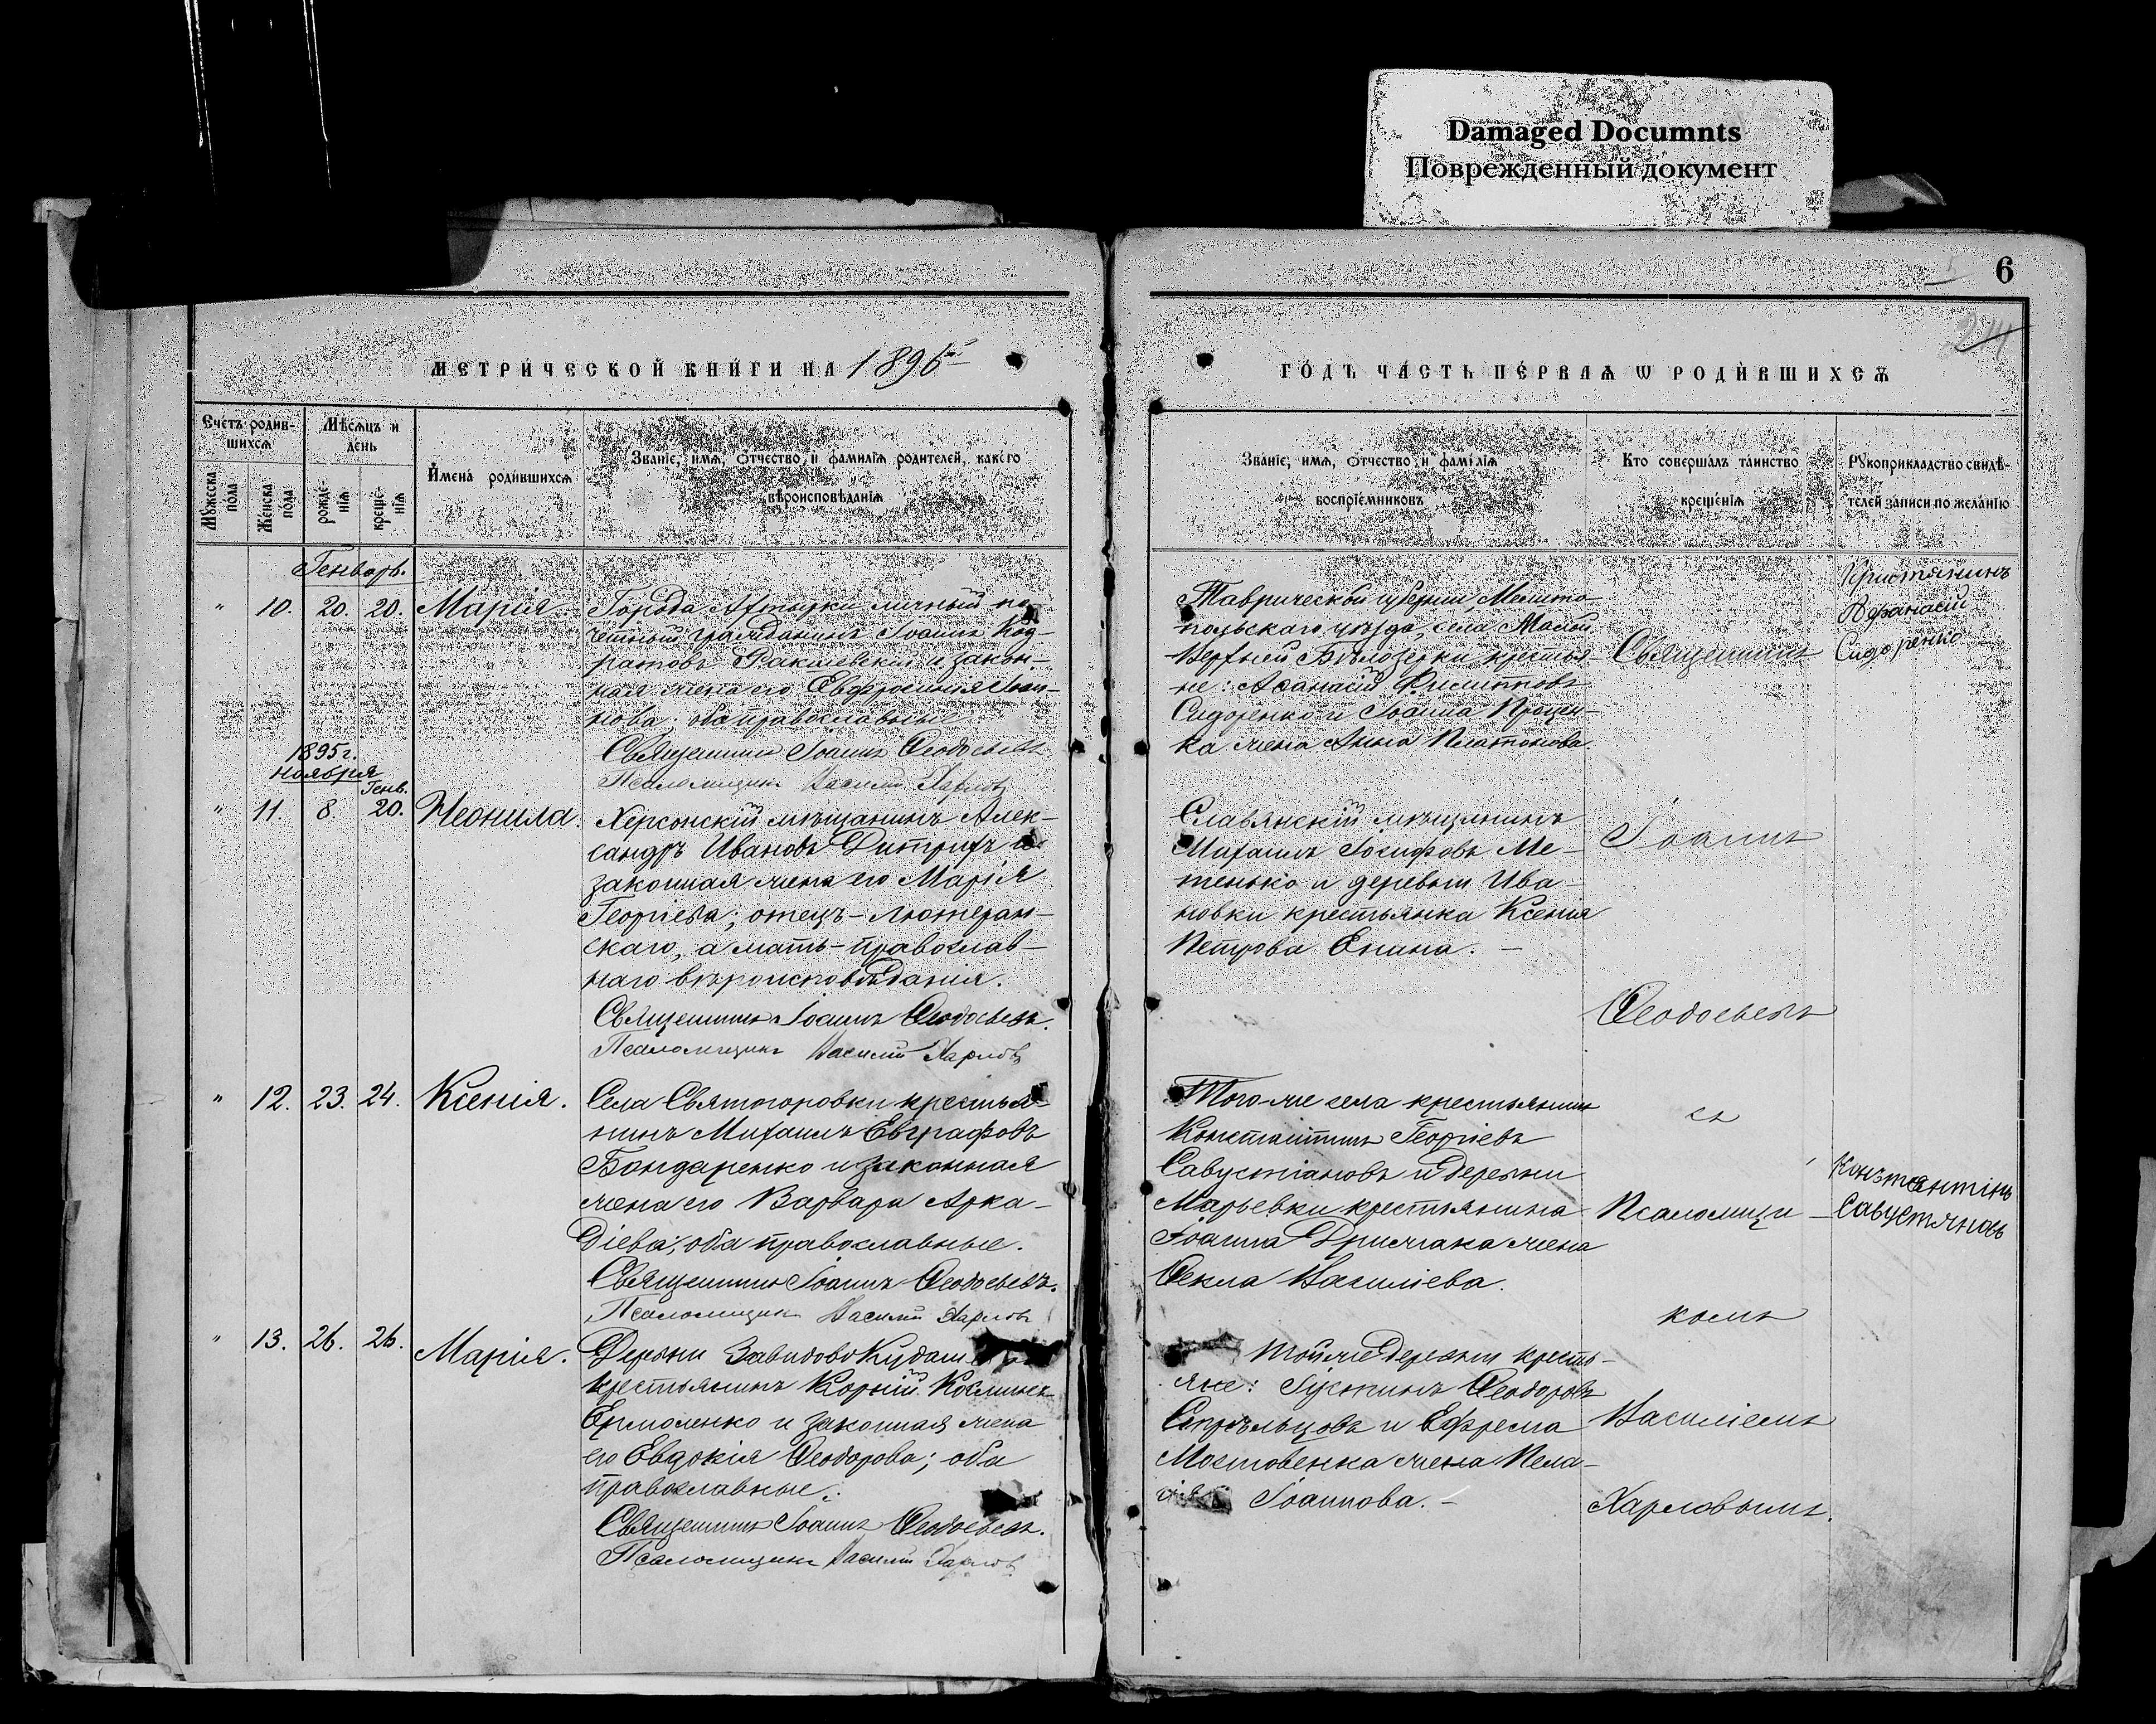 Damaged Documnts
Поврежденный документ
6
5
274
МЕТРИЧЕСКОЙ КНИГИ НА 1896й
ГОДЪ ЧАСТЬ ПЕРВАѦ Ѡ РОДИВШИХСѦ
Счетъ родив-
шихсѧ
Мѣсѧцъ и
день
Мꙋжеска
пола
Женска
пола
рожде-
нїѧ
креще-
нїѧ
Имена родившихсѧ
Званїе, имѧ, отчество и фамилїѧ родителей, какого
вѣроисповѣданїѧ
Званїе, имѧ, отчество и фамилїѧ
воспрїемниковъ
Кто совершалъ таинство
крещенїѧ
Рꙋкоприкладство свидѣ-
телей записи по желанїю
Генварь.
" 10. 20. 20. Марія.
Города Ахтырки личный по-
четный гражданинъ Іоаннъ Код-
ратовъ Ракшевскій и закон-
ная жена его Евфросинія Іоан-
нова; оба православные.
Священникъ Іоаннъ Ѳеодосьевъ
Псаломщикъ Василій Харловъ
Таврической губерніи, Мелито-
польскаго уѣзда, села Малой
Верхней Бѣлозерки крестья-
не: Аѳанасій Филипповъ
Сидоренко и Іоанна Процен-
ка жена Анна Платонова.
Кристянинъ
Афанасій
Сидоренко
1895 г.
ноября
Генв.
" 11. 8. 20. Неонила.
Херсонскій мѣщанинъ Алек-
сандръ Ивановъ Дитрихъ и
законная жена его Марія
Георгіева; отецъ - лютеран-
скаго, а мать - православ-
наго вѣроисповѣданія.
Священникъ Іоаннъ Ѳеодосьевъ.
Псаломщикъ Василій Харловъ
Славянскій мѣщанинъ
Михаилъ Іосифовъ Ме-
тенько и деревни Ива-
новки крестьянка Ксенія
Петрова Енина. -
" 12. 23. 24. Ксенія.
Села Святогоровки крестья-
нинъ Михаилъ Евграфовъ
Бондаренко и законная
жена его Варвара Арка-
діева; оба православные.
Священникъ Іоаннъ Ѳеодосьевъ.
Псаломщикъ Василій Харловъ
Того-же села крестьянинъ
Константинъ Георгіевъ
Савустіановъ и деревни
Марьевки крестьянина
Іоанна жена
Ѳекла Василіева.
Конътантінъ
Савустяновъ
" 13. 26. 26. Марія.
Деревни Завидово Кудаш
крестьянинъ Корній Косминъ
Ермоленко и законная жена
его Евдокія Ѳеодорова; оба
православные.
Священникъ Іоаннъ Ѳеодосьевъ.
Псаломщикъ Василій Харловъ
Той-же деревни кресть-
яне: Іустинъ Ѳеодоровъ
Стрѣльцовъ и Ефрема
Мостовенка жена Пела-
Іоаннова. -
Священникъ
Іоаннъ
Ѳеодосьевъ
съ
Псаломщи-
комъ
Василіемъ
Харловымъ.